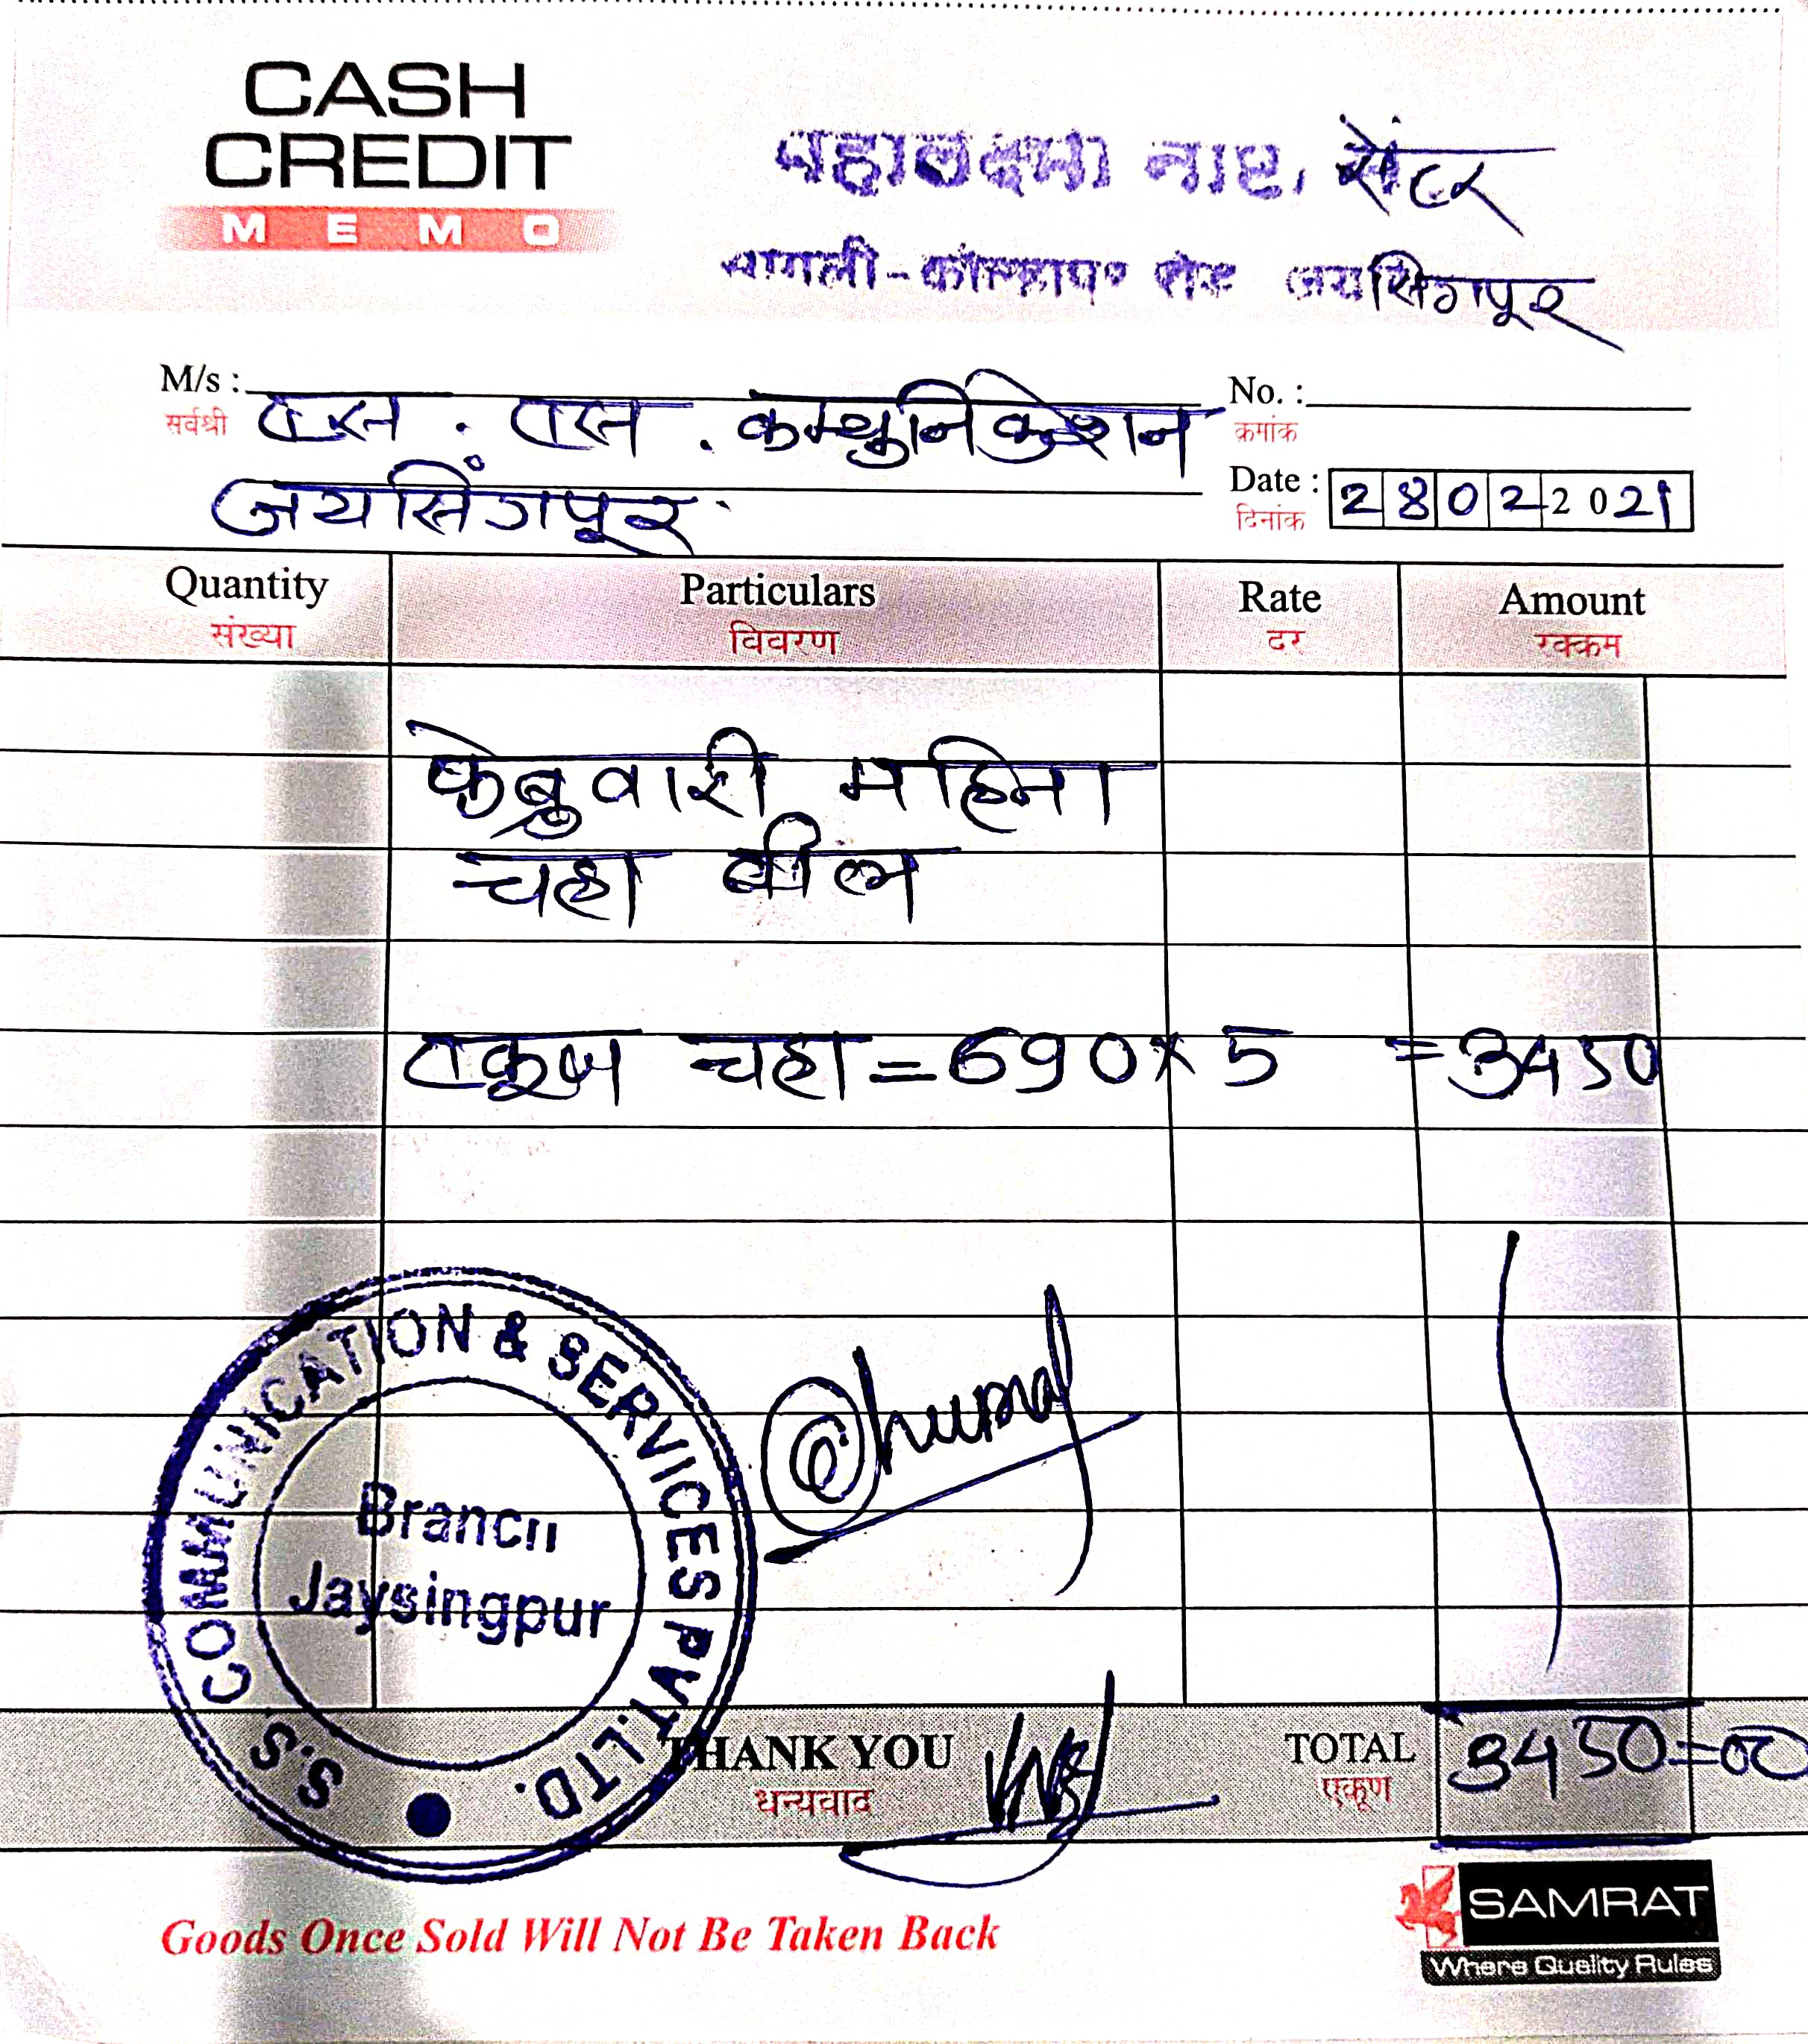 CASH
CREDIT
MEMO
महालक्ष्मी नाष्टा सेंटर
सांगली-कोल्हापूर रोड जयसिंगपूर
M/s : एस. एस. कम्युनिकेशन
सर्वश्री
जयसिंगपूर
No. :
क्रमांक
Date : 28022021
दिनांक
Quantity Particulars Rate Amount
संख्या विवरण दर रक्कम
फेब्रुवारी महिना
चहा बील
एकूण चहा = 690 × 5 = 3450
S.S. COMMUNICATION & SERVICES PVT. LTD.
Branch
Jaysingpur
THANK YOU TOTAL 3450=00
धन्यवाद एकूण
Goods Once Sold Will Not Be Taken Back
SAMRAT
Where Quality Rules